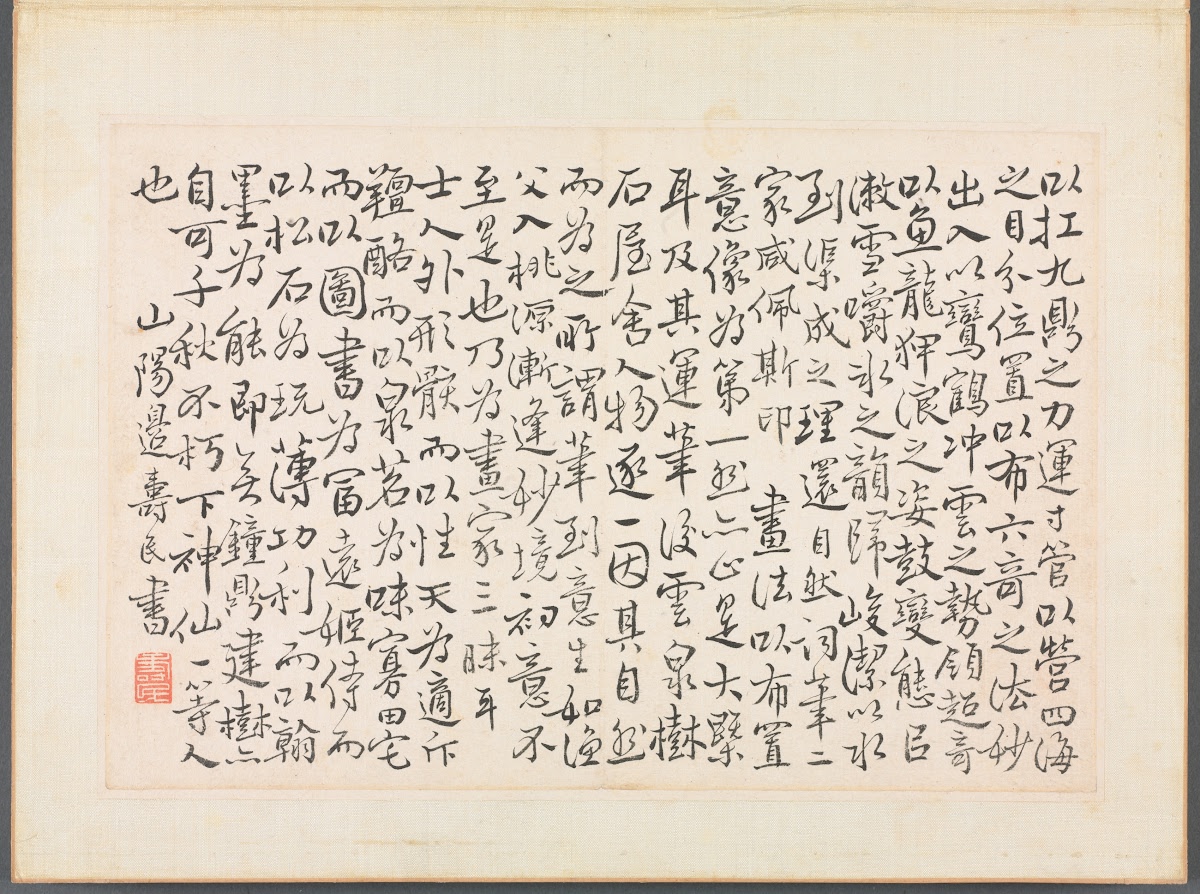 以扛九鼎之力運寸管以營四海
之目分位置以布六奇之法妙
出入以鸞鶴沖雲之勢領超奇
以魚龍狎浪之姿鼓變態臣
漱雪嚼冰之韻歸峻潔以水
到渠成之理還自然詞筆二
家咸佩斯印 畫法以布置
意像為第一然亦止是大槩
耳及其運筆後雲泉樹
石屋舍人物逐一因其自然
而為之所謂筆到意生如漁
父入桃源漸逢妙境初意不
至是也乃為畫家三昧耳
士人外形骸而以性天為適斥
羶酪而以泉茗為味寡田宅
而以圖書為富遠姬侍而
以松石為玩薄功利而以翰
墨為能即無鐘鼎建樹亦
自可千秋不朽下神仙一等人
也 山陽邊壽民書
壽民